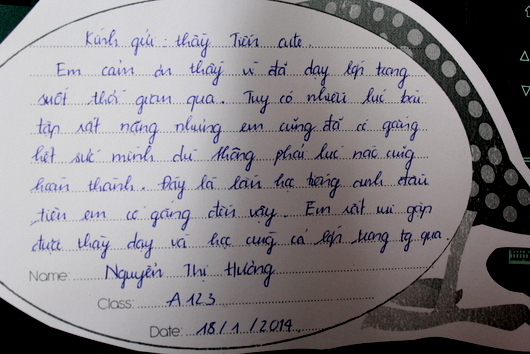 Kính gửi: thầy Tiến cute.
Em cảm ơn thầy vì đã dạy lớp trong
suốt thời gian qua. Tuy có nhiều lúc bài
tập rất nặng nhưng em cũng đã cố gắng
hết sức mình dù không phải lúc nào cũng
hoàn thành. Đây là lần học tiếng anh đầu
tiên em cố gắng đến vậy. Em rất vui gặp
được thầy dạy và học cùng cả lớp trong tg qua.
Name: Nguyễn Thị Hường
Class: A123
Date: 18/1/2014